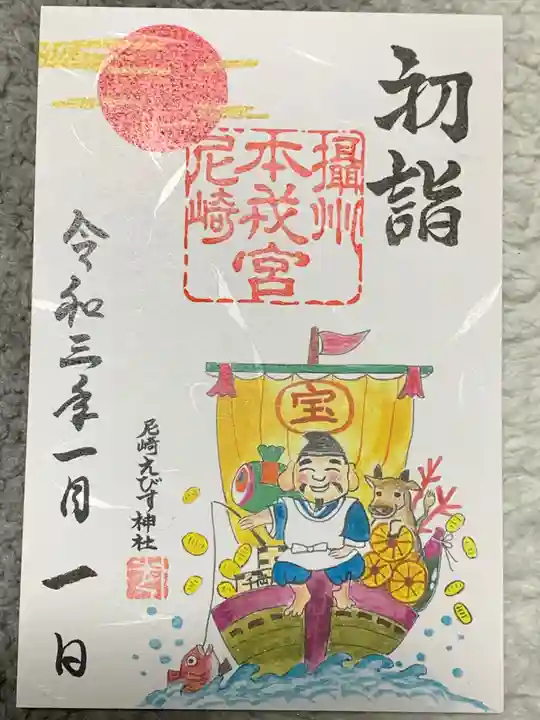 初詣
攝州
本戎宮
尼崎
宝
尼崎えびす神社
令和三年一月一日